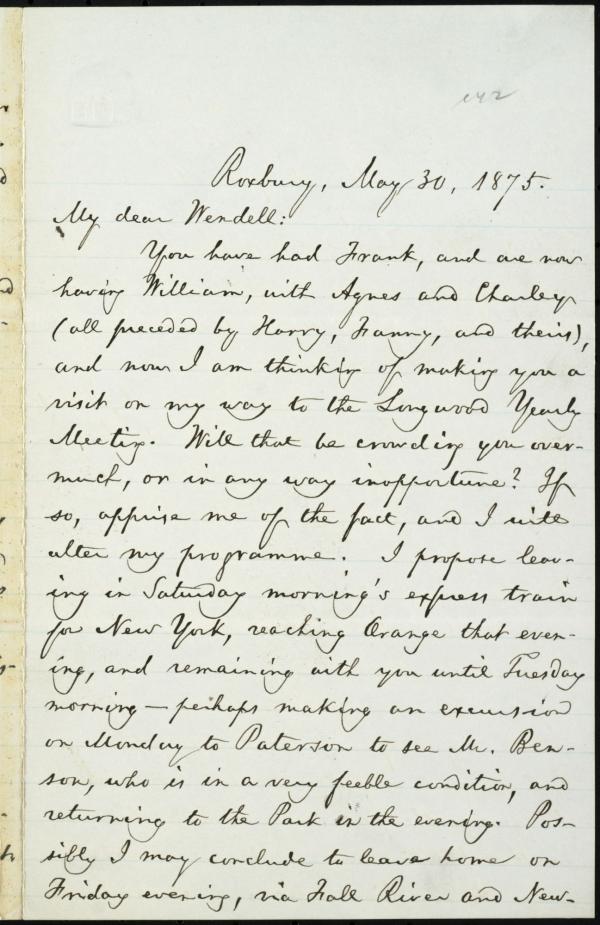 142
Roxbury, May 30, 1875.
My dear Wendell:
You have had Frank, and are now
having William, with Agnes and Charley
(all preceded by Harry, Fanny, and theirs),
and now I am thinking of making you a
visit on my way to the Longwood Yearly
Meeting. Will that be crowding you over-
much, or in any way inopportune? If
so, apprise me of the fact, and I will
alter my programme. I propose leav-
ing in Saturday morning's express train
for New York, reaching Orange that even-
ing, and remaining with you until Tuesday
morning — perhaps making an excursion
on Monday to Paterson to see Mr. Ben-
son, who is in a very feeble condition, and
returning to the Park in the evening. Pos-
sibly I may conclude to leave home on
Friday evening, via Fall River and New-